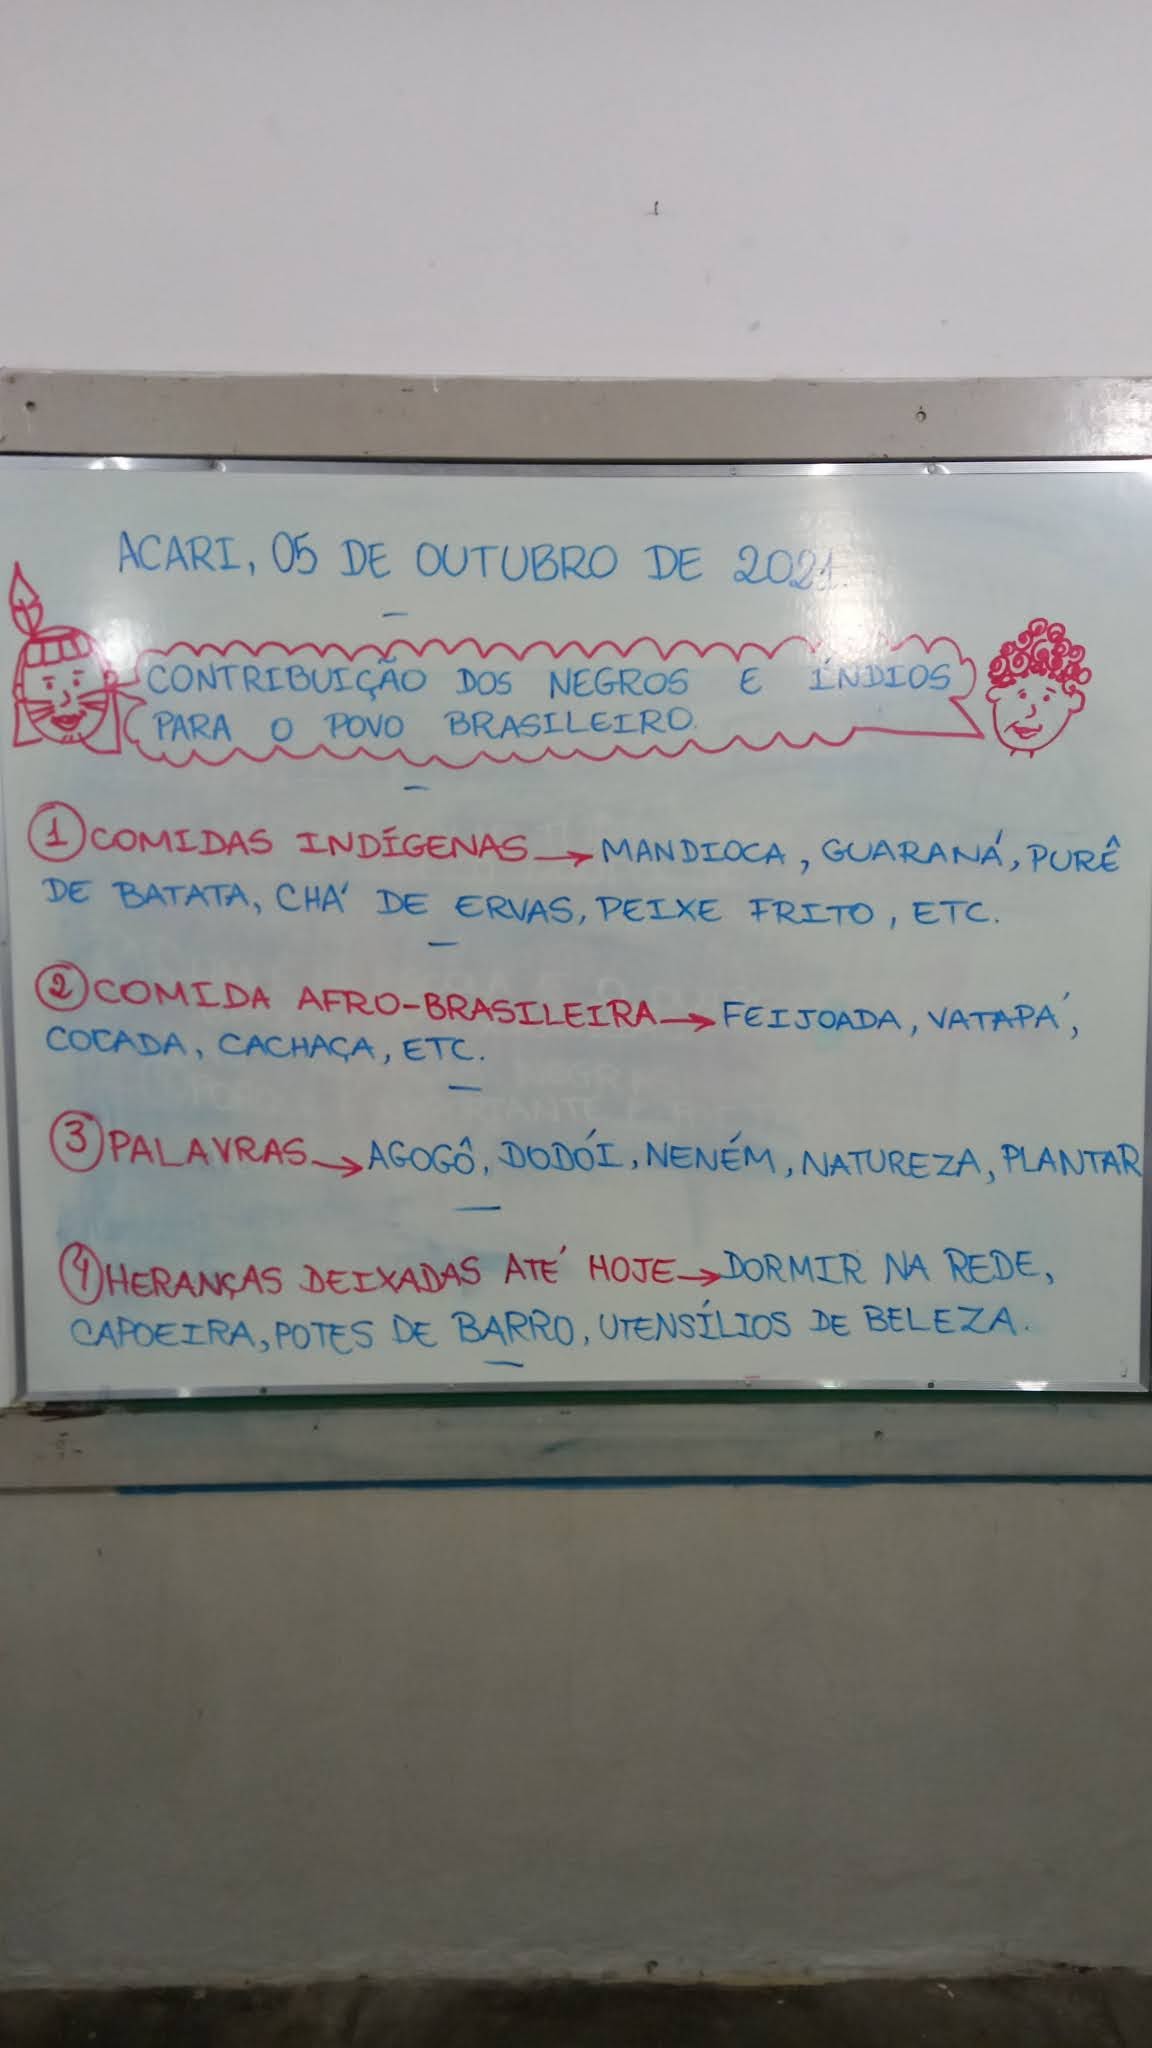 ACARI, 05 DE OUTUBRO DE 2021.
CONTRIBUIÇÃO DOS NEGROS E ÍNDIOS
PARA O POVO BRASILEIRO.
1 COMIDAS INDÍGENAS → MANDIOCA, GUARANÁ, PURÊ
DE BATATA, CHÁ DE ERVAS, PEIXE FRITO, ETC.
2 COMIDA AFRO-BRASILEIRA → FEIJOADA, VATAPÁ,
COCADA, CACHAÇA, ETC.
3 PALAVRAS → AGOGÔ, DODÓI, NENÉM, NATUREZA, PLANTAR
4 HERANÇAS DEIXADAS ATÉ HOJE → DORMIR NA REDE,
CAPOEIRA, POTES DE BARRO, UTENSÍLIOS DE BELEZA.